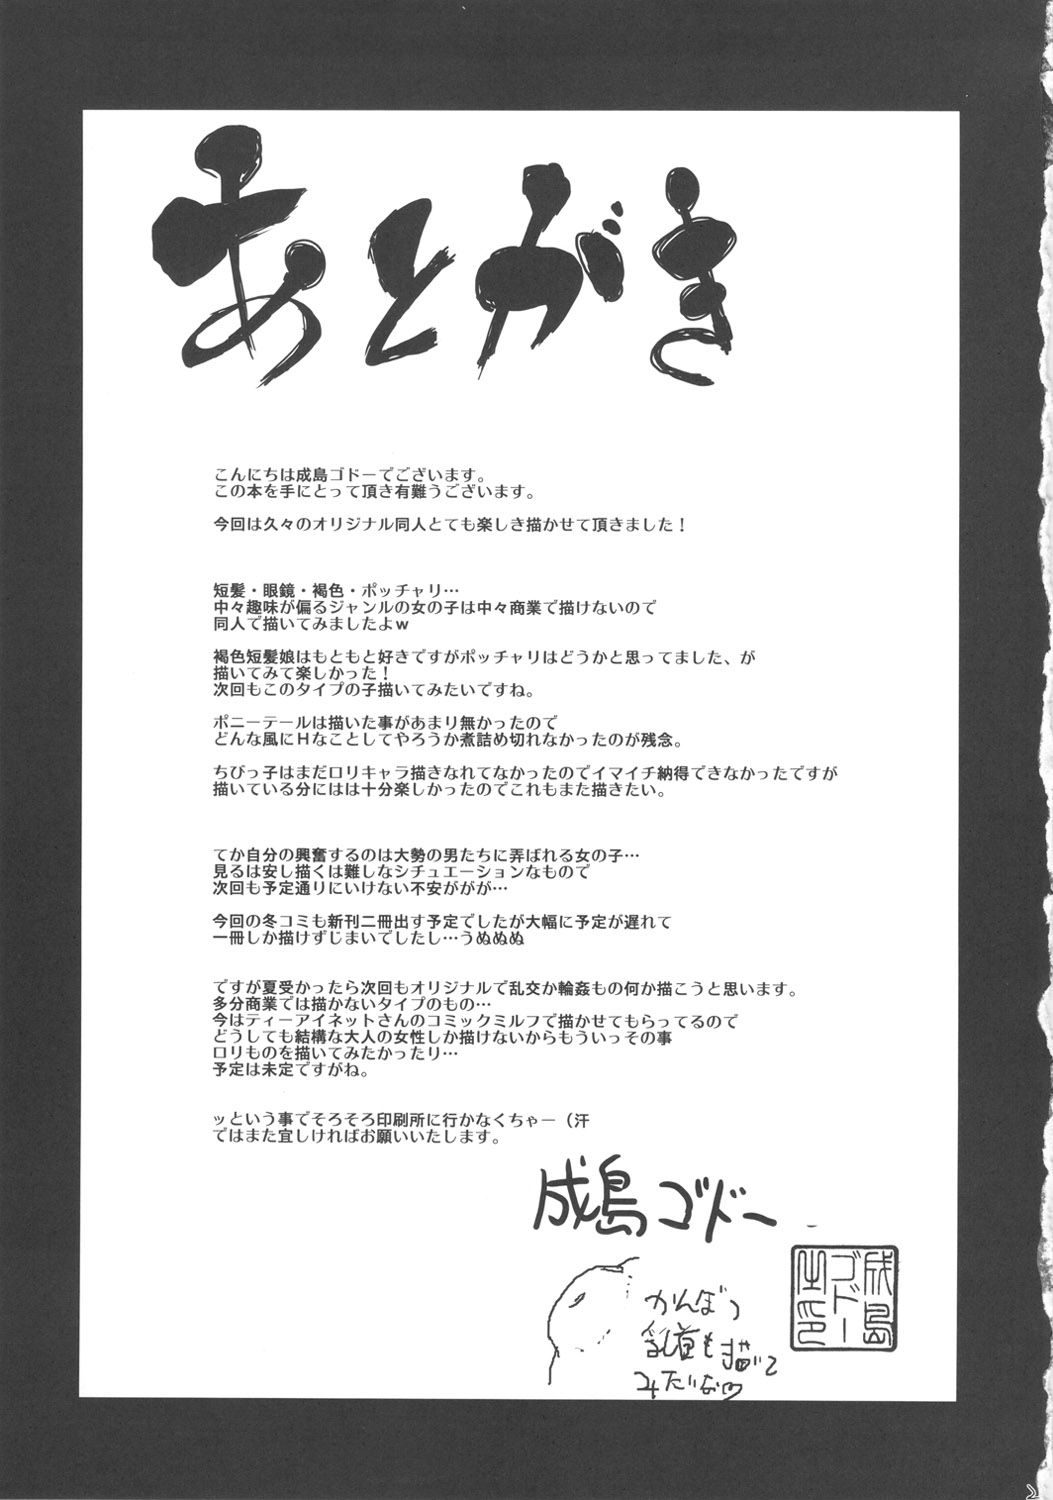 あとがき
こんにちは成島ゴドーでございます。
この本を手にとって頂き有難うございます。
今回は久々のオリジナル同人とても楽しき描かせて頂きました！
短髪・眼鏡・褐色・ポッチャリ…
中々趣味が偏るジャンルの女の子は中々商業で描けないので
同人で描いてみましたよｗ
褐色短髪娘はもともと好きですがポッチャリはどうかと思ってました、が
描いてみて楽しかった！
次回もこのタイプの子描いてみたいですね。
ポニーテールは描いた事があまり無かったので
どんな風にＨなことしてやろうか煮詰め切れなかったのが残念。
ちびっ子はまだロリキャラ描きなれてなかったのでイマイチ納得できなかったですが
描いている分にはは十分楽しかったのでこれもまた描きたい。
てか自分の興奮するのは大勢の男たちに弄ばれる女の子…
見るは安し描くは難しなシチュエーションなもので
次回も予定通りにいけない不安ががが…
今回の冬コミも新刊二冊出す予定でしたが大幅に予定が遅れて
一冊しか描けずじまいでしたし…うぬぬぬ
ですが夏受かったら次回もオリジナルで乱交か輪姦もの何か描こうと思います。
多分商業では描かないタイプのもの…
今はティーアイネットさんのコミックミルフで描かせてもらってるので
どうしても結構な大人の女性しか描けないからもういっその事
ロリものを描いてみたかったり…
予定は未定ですがね。
ッという事でそろそろ印刷所に行かなくちゃー（汗
ではまた宜しければお願いいたします。
成島ゴドー
かんぼつ
乳首も描いて
みたいなの
成島
ゴドー
之印